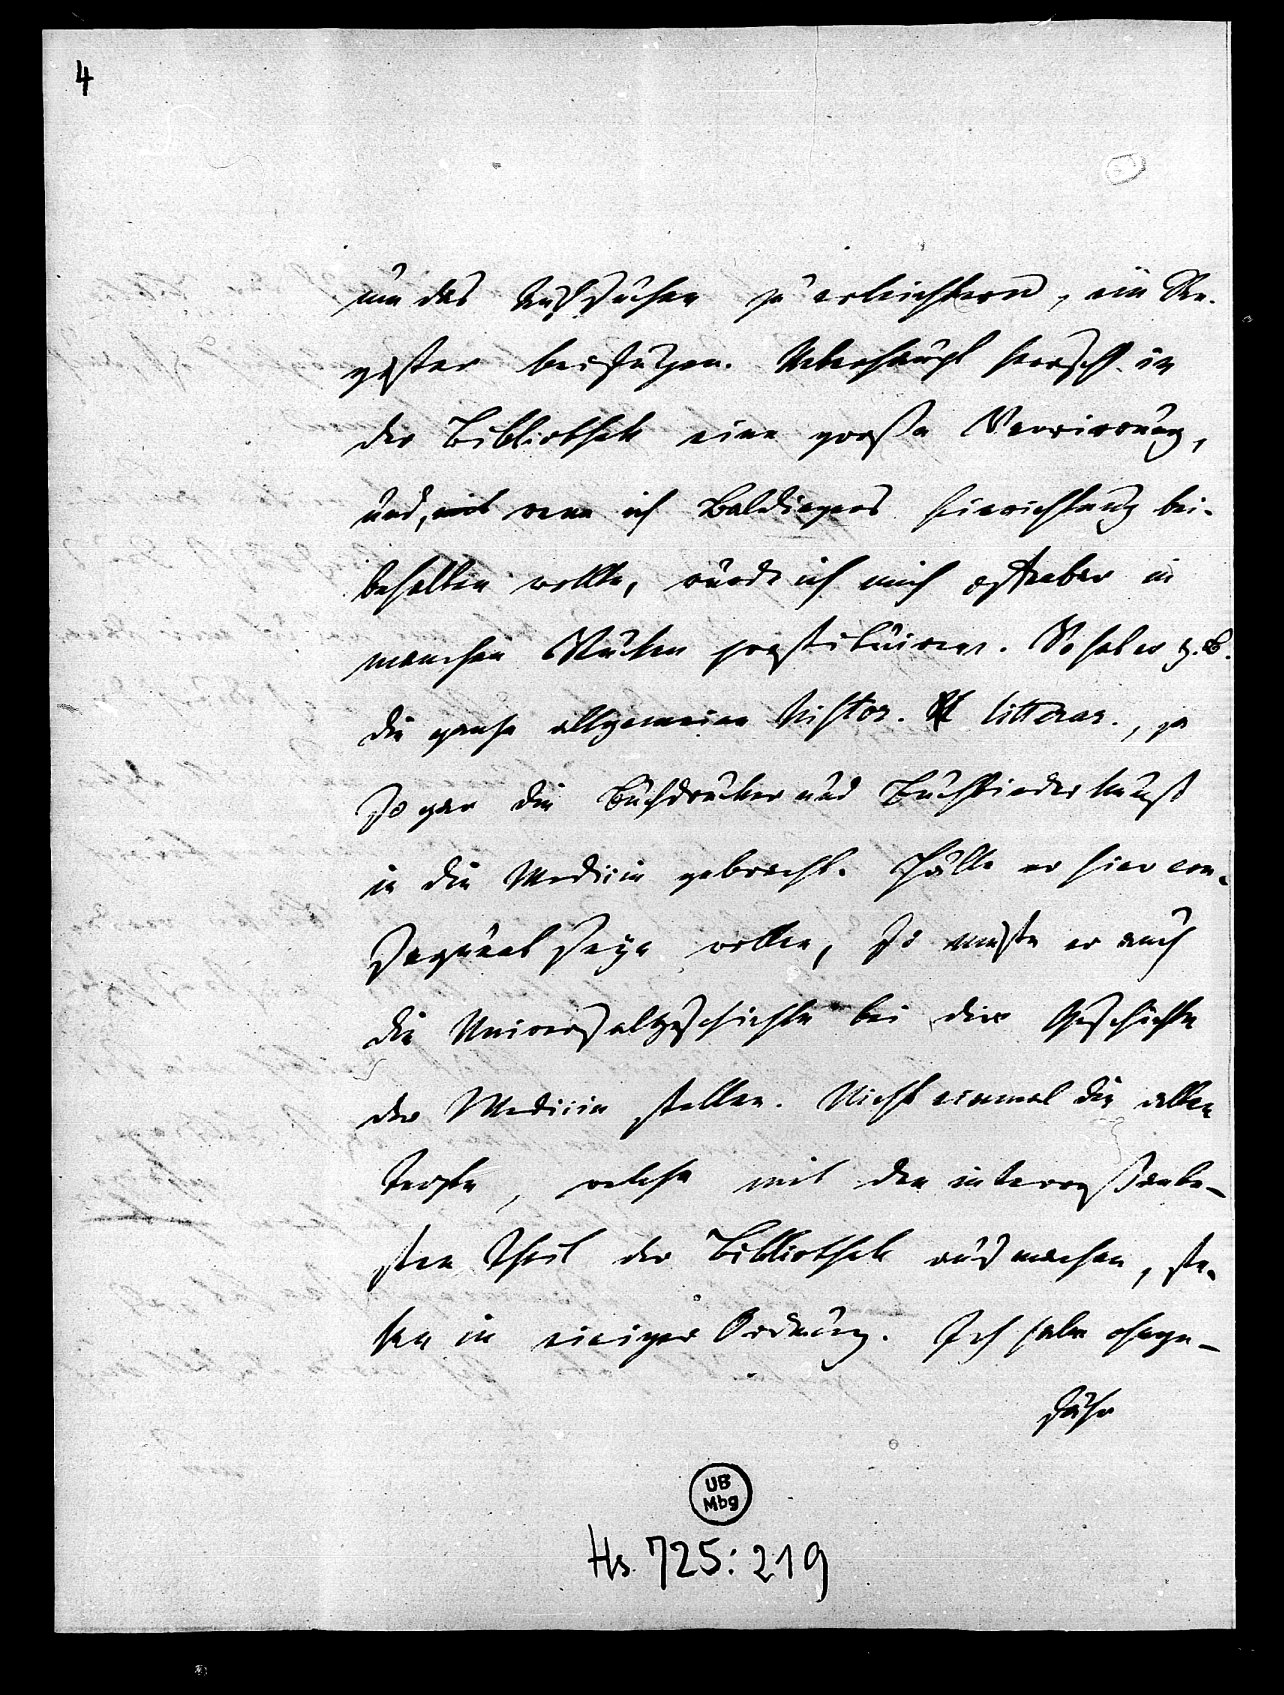 4
um das Aufsuchen zu erleichtern, ein Re-
gister beifügen. Ueberhaupt herrscht in
der Bibliothek eine große Verwirrung,
und, wenn ich Baldingers Einrichtung bei-
behalten wollte, würde ich mich offenbar in
manchen Stücken prostituiren. So hat er z. B.
die ganze allgemeine histor. litterar., ja
sogar die Buchdrucker und Buchbinderkunst
in die Medicin gebracht. Hätte er hier con-
sequent seyn wollen, so mußte er auch
die Universalgeschichte bei die Geschichte
der Medicin stellen. Nicht einmal die alten
Aerzte, welche mit den interessante-
sten Theil der Bibliothek ausmachen, ste-
hen in einiger Ordnung. Ich habe ohnge-
fähr
UB
Mbg
Hs. 725:219